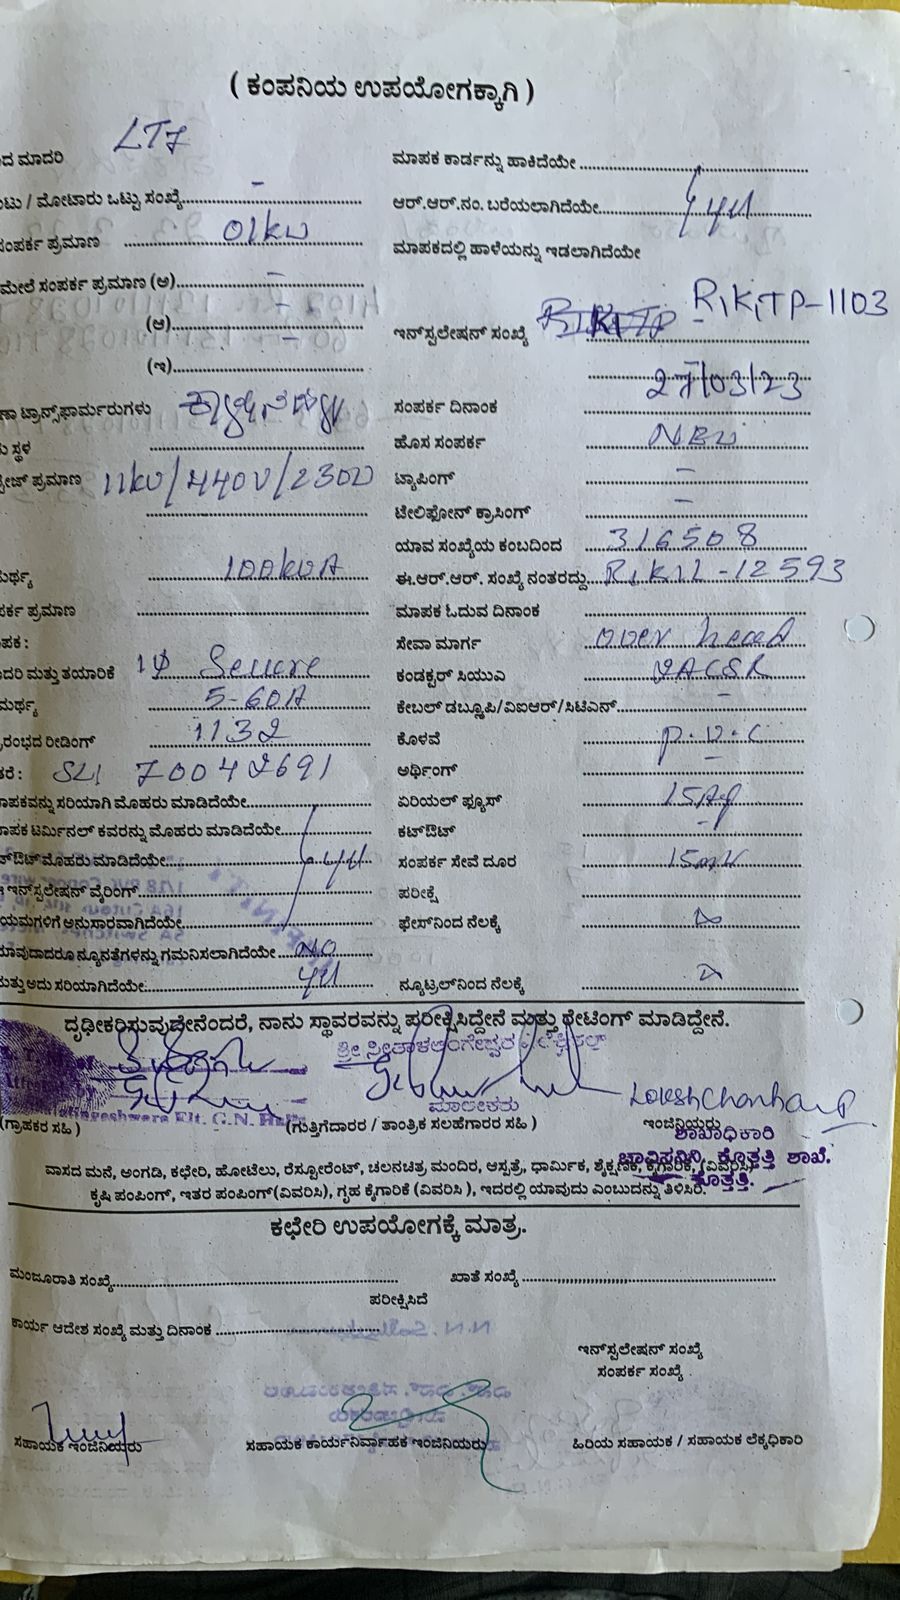 ( ಕಂಪನಿಯ ಉಪಯೋಗಕ್ಕಾಗಿ )
ದ ಮಾದರಿ LT7
ಟು / ಮೋಟಾರು ಒಟ್ಟು ಸಂಖ್ಯೆ -
ಸಂಪರ್ಕ ಪ್ರಮಾಣ 01kw
ಮೇಲೆ ಸಂಪರ್ಕ ಪ್ರಮಾಣ (ಅ) -
(ಆ) -
(ಇ) -
ಣಾ ಟ್ರಾನ್ಸ್‌ಫಾರ್ಮರುಗಳು
ಸ್ಥಳ
ಪ್ರಮಾಣ 11kv/440v/230v
100kvA
ರ್ಕ ಪ್ರಮಾಣ
ಪಕ :
ದರಿ ಮತ್ತು ತಯಾರಿಕೆ 1Φ Secure
ಮರ್ಥ್ಯ 5-60A
ರಂಭದ ರೀಡಿಂಗ್ 1132
ತರೆ : SL1 70042691
ಾಪಕವನ್ನು ಸರಿಯಾಗಿ ಮೊಹರು ಮಾಡಿದೆಯೇ
ಾಪಕ ಟರ್ಮಿನಲ್ ಕವರನ್ನು ಮೊಹರು ಮಾಡಿದೆಯೇ
ಟ್‌ಔಟ್ ಮೊಹರು ಮಾಡಿದೆಯೇ
ಇನ್‌ಸ್ಪಲೇಷನ್ ವೈರಿಂಗ್
ಯಮಗಳಿಗೆ ಅನುಸಾರವಾಗಿದೆಯೇ
ಯಾವುದಾದರೂ ನ್ಯೂನತೆಗಳನ್ನು ಗಮನಿಸಲಾಗಿದೆಯೇ NO
ಮತ್ತು ಅದು ಸರಿಯಾಗಿದೆಯೇ
ಮಾಪಕ ಕಾರ್ಡನ್ನು ಹಾಕಿದೆಯೇ
ಆರ್.ಆರ್.ನಂ. ಬರೆಯಲಾಗಿದೆಯೇ
ಮಾಪಕದಲ್ಲಿ ಹಾಳೆಯನ್ನು ಇಡಲಾಗಿದೆಯೇ
ಇನ್‌ಸ್ಪಲೇಷನ್ ಸಂಖ್ಯೆ R1K1TP-1103
27/03/23
ಸಂಪರ್ಕ ದಿನಾಂಕ
ಹೊಸ ಸಂಪರ್ಕ NEW
ಟ್ಯಾಪಿಂಗ್ -
ಟೇಲಿಫೋನ್ ಕ್ರಾಸಿಂಗ್ -
ಯಾವ ಸಂಖ್ಯೆಯ ಕಂಬದಿಂದ 316508
ಈ.ಆರ್.ಆರ್. ಸಂಖ್ಯೆ ನಂತರದ್ದು R1K1L-12593
ಮಾಪಕ ಓದುವ ದಿನಾಂಕ
ಸೇವಾ ಮಾರ್ಗ over head
ಕಂಡಕ್ಟರ್ ಸಿಯುಎ ACSR
ಕೇಬಲ್ ಡಬ್ಲೂಪಿ/ವಿಐಆರ್/ಸಿಟಿಎಸ್ -
ಕೊಳವೆ P.V.C
ಅರ್ಥಿಂಗ್ -
ಏರಿಯಲ್ ಫ್ಯೂಸ್
ಕಟ್‌ಔಟ್ -
ಸಂಪರ್ಕ ಸೇವೆ ದೂರ
ಪರೀಕ್ಷೆ
ಫೇಸ್‌ನಿಂದ ನೆಲಕ್ಕೆ
ನ್ಯೂಟ್ರಲ್‌ನಿಂದ ನೆಲಕ್ಕೆ
ದೃಢೀಕರಿಸುವುದೇನೆಂದರೆ, ನಾನು ಸ್ಥಾವರವನ್ನು ಪರೀಕ್ಷಿಸಿದ್ದೇನೆ ಮತ್ತು ರೇಟಿಂಗ್ ಮಾಡಿದ್ದೇನೆ.
ಮಾಲೀಕರು
Lokesh
(ಗ್ರಾಹಕರ ಸಹಿ )
(ಗುತ್ತಿಗೆದಾರರ / ತಾಂತ್ರಿಕ ಸಲಹೆಗಾರರ ಸಹಿ )
ಇಂಜಿನಿಯರು
ಶಾಖಾಧಿಕಾರಿ
ಚಾವಿಸನಿನಿ, ಕೊತ್ತತ್ತಿ ಶಾಖೆ.
ಕೊತ್ತತ್ತಿ.
ವಾಸದ ಮನೆ, ಅಂಗಡಿ, ಕಛೇರಿ, ಹೋಟೆಲು, ರೆಸ್ಟೋರೆಂಟ್, ಚಲನಚಿತ್ರ ಮಂದಿರ, ಆಸ್ಪತ್ರೆ, ಧಾರ್ಮಿಕ, ಶೈಕ್ಷಣಿಕ, ಕೈಗಾರಿಕೆ, (ವಿವರಿಸಿ)
ಕೃಷಿ ಪಂಪಿಂಗ್, ಇತರ ಪಂಪಿಂಗ್(ವಿವರಿಸಿ), ಗೃಹ ಕೈಗಾರಿಕೆ (ವಿವರಿಸಿ ), ಇದರಲ್ಲಿ ಯಾವುದು ಎಂಬುದನ್ನು ತಿಳಿಸಿರಿ.
ಕಛೇರಿ ಉಪಯೋಗಕ್ಕೆ ಮಾತ್ರ.
ಮಂಜೂರಾತಿ ಸಂಖ್ಯೆ
ಖಾತೆ ಸಂಖ್ಯೆ
ಪರೀಕ್ಷಿಸಿದೆ
ಕಾರ್ಯ ಆದೇಶ ಸಂಖ್ಯೆ ಮತ್ತು ದಿನಾಂಕ
ಇನ್‌ಸ್ಪಲೇಷನ್ ಸಂಖ್ಯೆ
ಸಂಪರ್ಕ ಸಂಖ್ಯೆ
ಸಹಾಯಕ ಇಂಜಿನಿಯರು
ಸಹಾಯಕ ಕಾರ್ಯನಿರ್ವಾಹಕ ಇಂಜಿನಿಯರು
ಹಿರಿಯ ಸಹಾಯಕ / ಸಹಾಯಕ ಲೆಕ್ಕಧಿಕಾರಿ